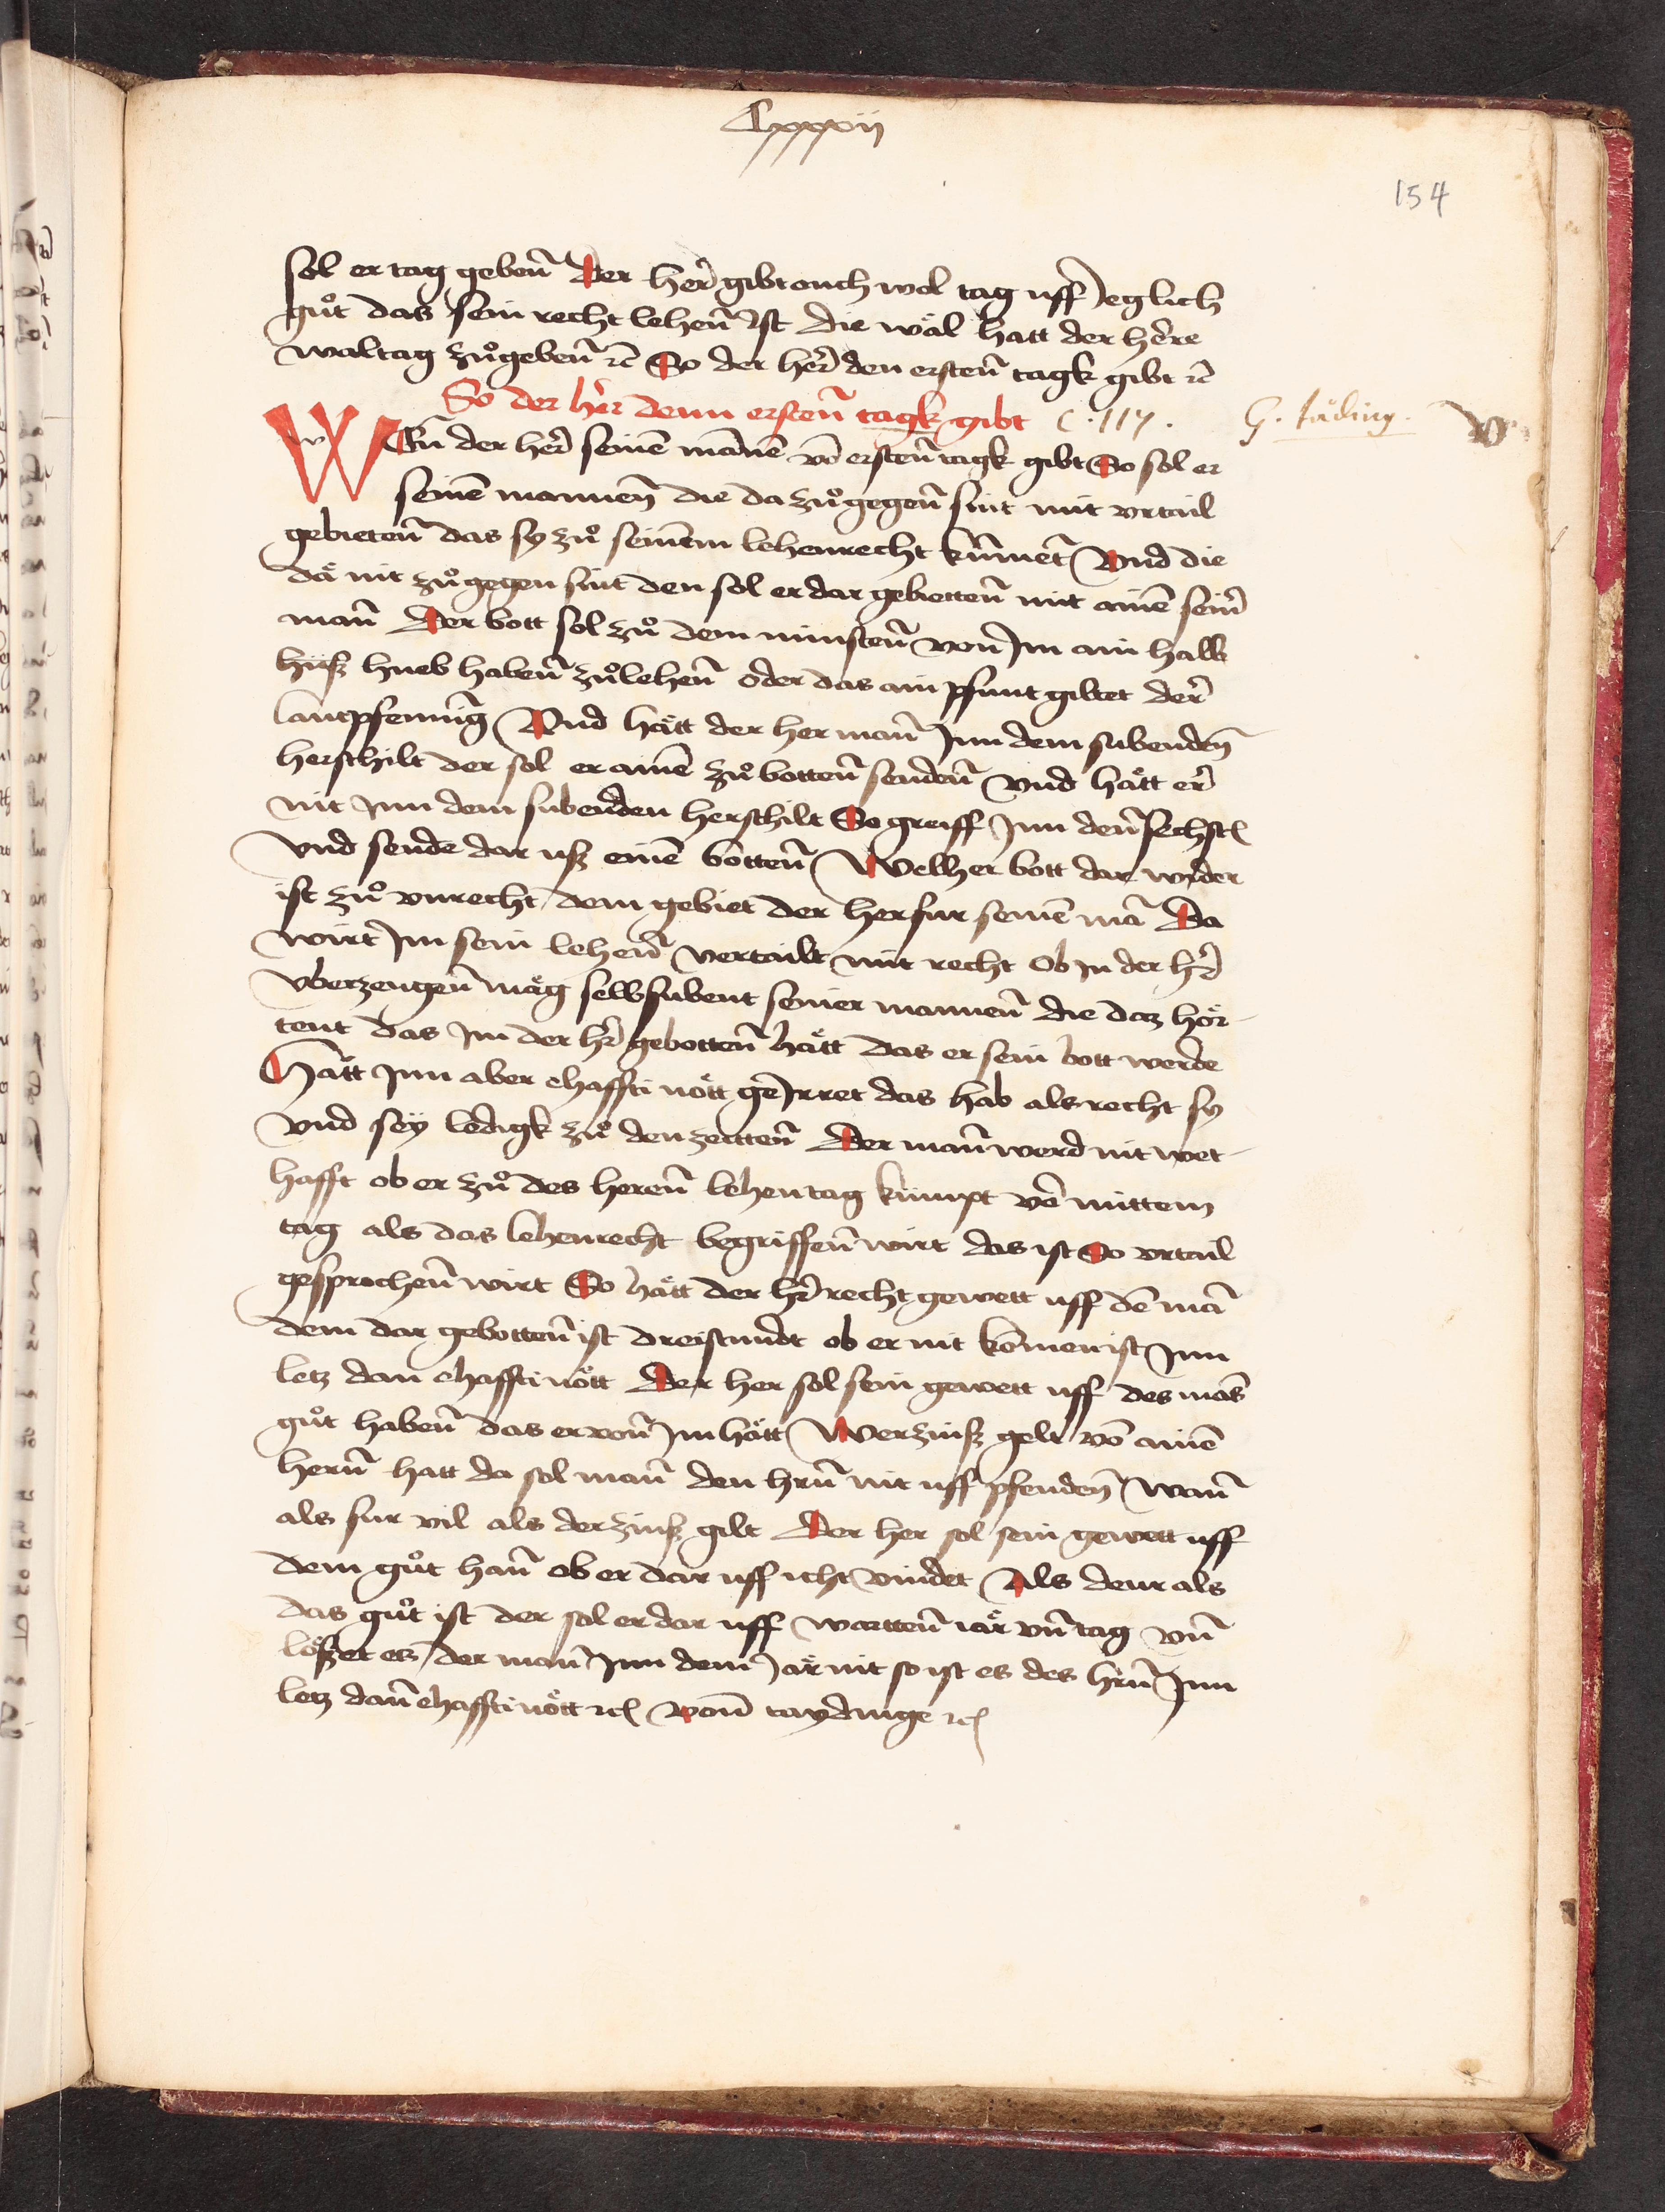 Clxxxii
154
sol er tag gebenn̄ Der her̄ gibt ouch wol tag uff yeglich
gůt das sein recht lehenn̄ ist die wäl hatt der here
waltag zůgebenn̄ ꝛc̄ So der her̄ den erstenn̄ tagk gibt ꝛc̄
So der her denn erstenn̄ tagk gibt C. 117. G. täding.
WEn̄ der her̄ seinē manē vō erstenn̄ tagk gibt So sol er
seinē mannen̄ die da zůgegenn̄ sint mit vrtail
gebietenn̄ das sy zů seinem lehenrecht kūmet̄ Vnd die
dä nit zůgegen sint den sol er dar gebiettenn̄ mit ainē sein̄
man̄ Der bott sol zů dem minstenn̄ von Im ain halb
hüß hueb habenn̄ zůlehenn̄ oder das ain pfunt giltet der̄
lantpfenniḡ Vnd hätt der her man̄ Inn dem subenden̄
herschilt der sol er ainē zů bottenn̄ sendenn̄ vnd hätt er̄
nit Inn dem subenden herschilt So greiff Inn denn̄ sechstē
vnd sende dar uß einē bottenn̄ Welher bott dar wyder
ist zů vnrecht dem gebiet der her fur seinē mā Da
wirt Im sein lehenn̄ vertailt mit recht Ob in der hr̄
vberzeugenn̄ mäg selbsubent seiner mannenn̄ die daz hör-
tent das Im der hr̄ gebottenn̄ hätt das er sein bott werde
Hätt Inn aber ehaffti nött geIrret das hab als recht sy
vnd sey ledigk zů den zeittenn̄ Der man̄ werd nit wet-
hafft ob er zů des herenn̄ lehentag kumpt vō mittem
tag als das lehenrecht begriffenn̄ wirt das ist So vrtail
gesprochenn̄ wirt So hätt der hr̄ recht gewett uff dē mā
dem dar gebottenn̄ ist dreistundt ob er nit komen ist Inn
letz dan ehaffti nött Der her sol sein gewett uff des mās
gůt habenn̄ das er vonn̄ Im hätt Wer zinß gelt vō ainē
herrn̄ hatt da sol man̄ den hrn̄ nit uff pfenden̄ wann̄
als fur vil als der zinß gilt Der her sol sein gewett uff
dem gůt hann̄ ob er dar uff icht vindet Als deur als
das gůt ist der sol er dar uff warttenn̄ iär vn̄ tag vn̄
lößet es der man̄ Inn dem Jär nit so ist es des hrn̄ Inn
letz dann̄ ehaffti nött ꝛc̄ Vonn̄ taydinge ꝛc̄